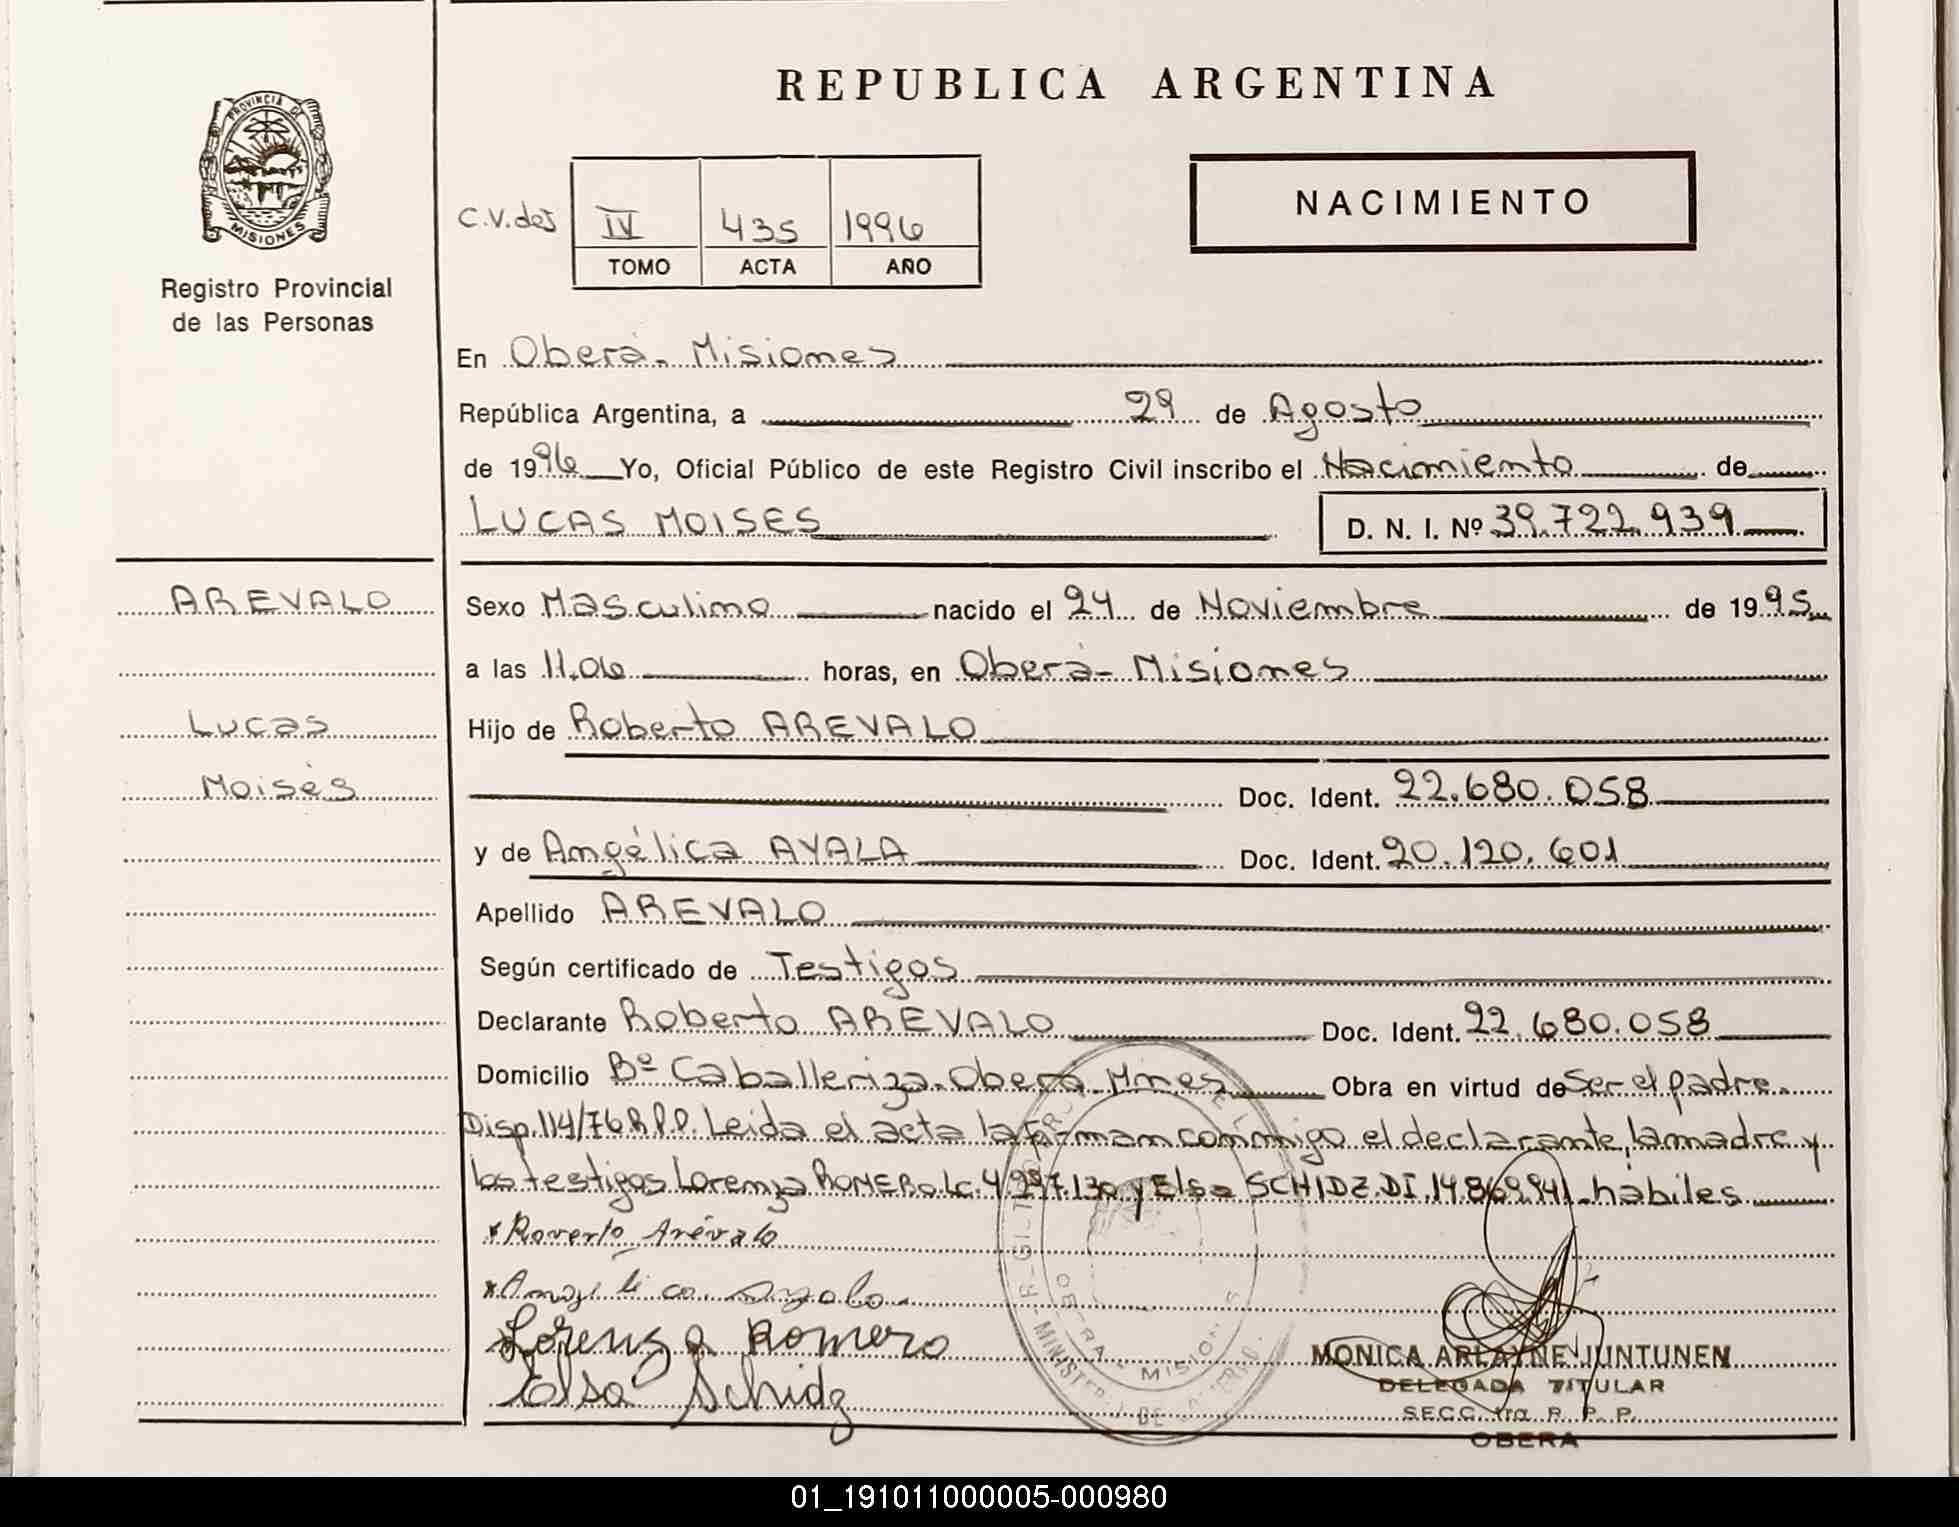 REPUBLICA ARGENTINA
PROVINCIA DE
MISIONES
Registro Provincial
de las Personas
NACIMIENTO
C.V.des IV 435 1996
TOMO ACTA AÑO
En Oberá- Misiones
República Argentina, a 29 de Agosto
de 1996 Yo, Oficial Público de este Registro Civil inscribo el Nacimiento de
LUCAS MOISES D. N. I. Nº 39.722.939
AREVALO
Lucas
Moisés
Sexo Masculino nacido el 24 de Noviembre de 1995
a las 11.06 horas, en Oberá- Misiones
Hijo de Roberto AREVALO
Doc. Ident. 22.680.058
y de Angélica AYALA Doc. Ident. 20.120.601
Apellido AREVALO
Según certificado de Testigos
Declarante Roberto AREVALO Doc. Ident. 22.680.058
Domicilio Bº Caballeriza-Oberá-Mnes Obra en virtud de Ser el padre.
Disp.114/76 R.P.P. Leida el acta la firman conmigo el declarante, la madre y
los testigos Lorenza ROMERO LC. 4.997.130 y Elsa SCHIDZ DI.14.869.941-hábiles
x Roverto Arévalo
x Angelica Ayala
Lorenza Romero
Elsa Schidz
OBERA MISIONES
MONICA ARLAYNE JUNTUNEN
DELEGADA TITULAR
SECC. 1ra R. P. P.
OBERA
01_191011000005-000980